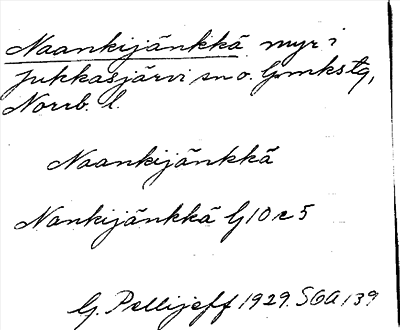 Naankijänkkä myr i
Jukkasjärvi sn o. Gmks tg,
Norrb. l.
Naankijänkkä
Nankijänkkä G10 c 5
G. Pellijeff 1929. SGA 139